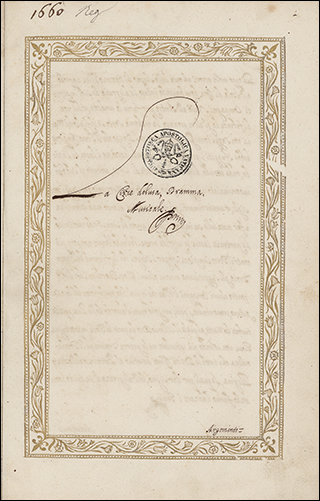 1660 Reg
BIBLIOTHECA APOSTOLICA VATICANA
La delusa, Dramma.
Musicale
Argomento=